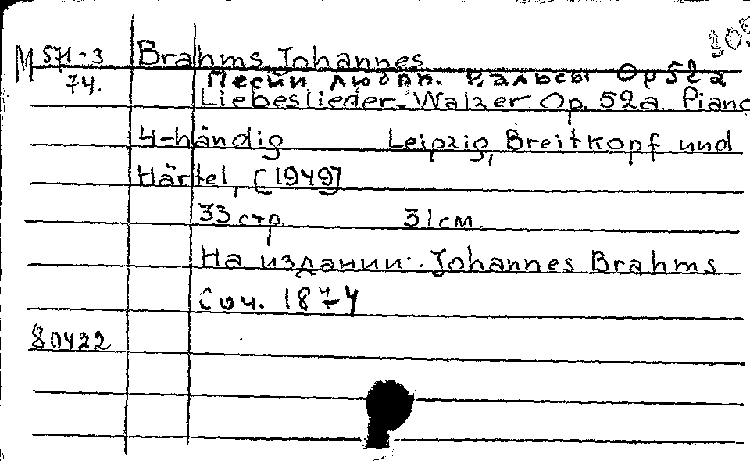 М 571-3
74.
Brahms Johannes
Песни любви. Вальсы Op 52a
Liebeslieder-Walzer Op. 52a Piano
4-händig Leipzig, Breitkopf und
Härtel, [1949]
33 стр. 31 см.
На издании: Johannes Brahms
Соч. 1874
80422